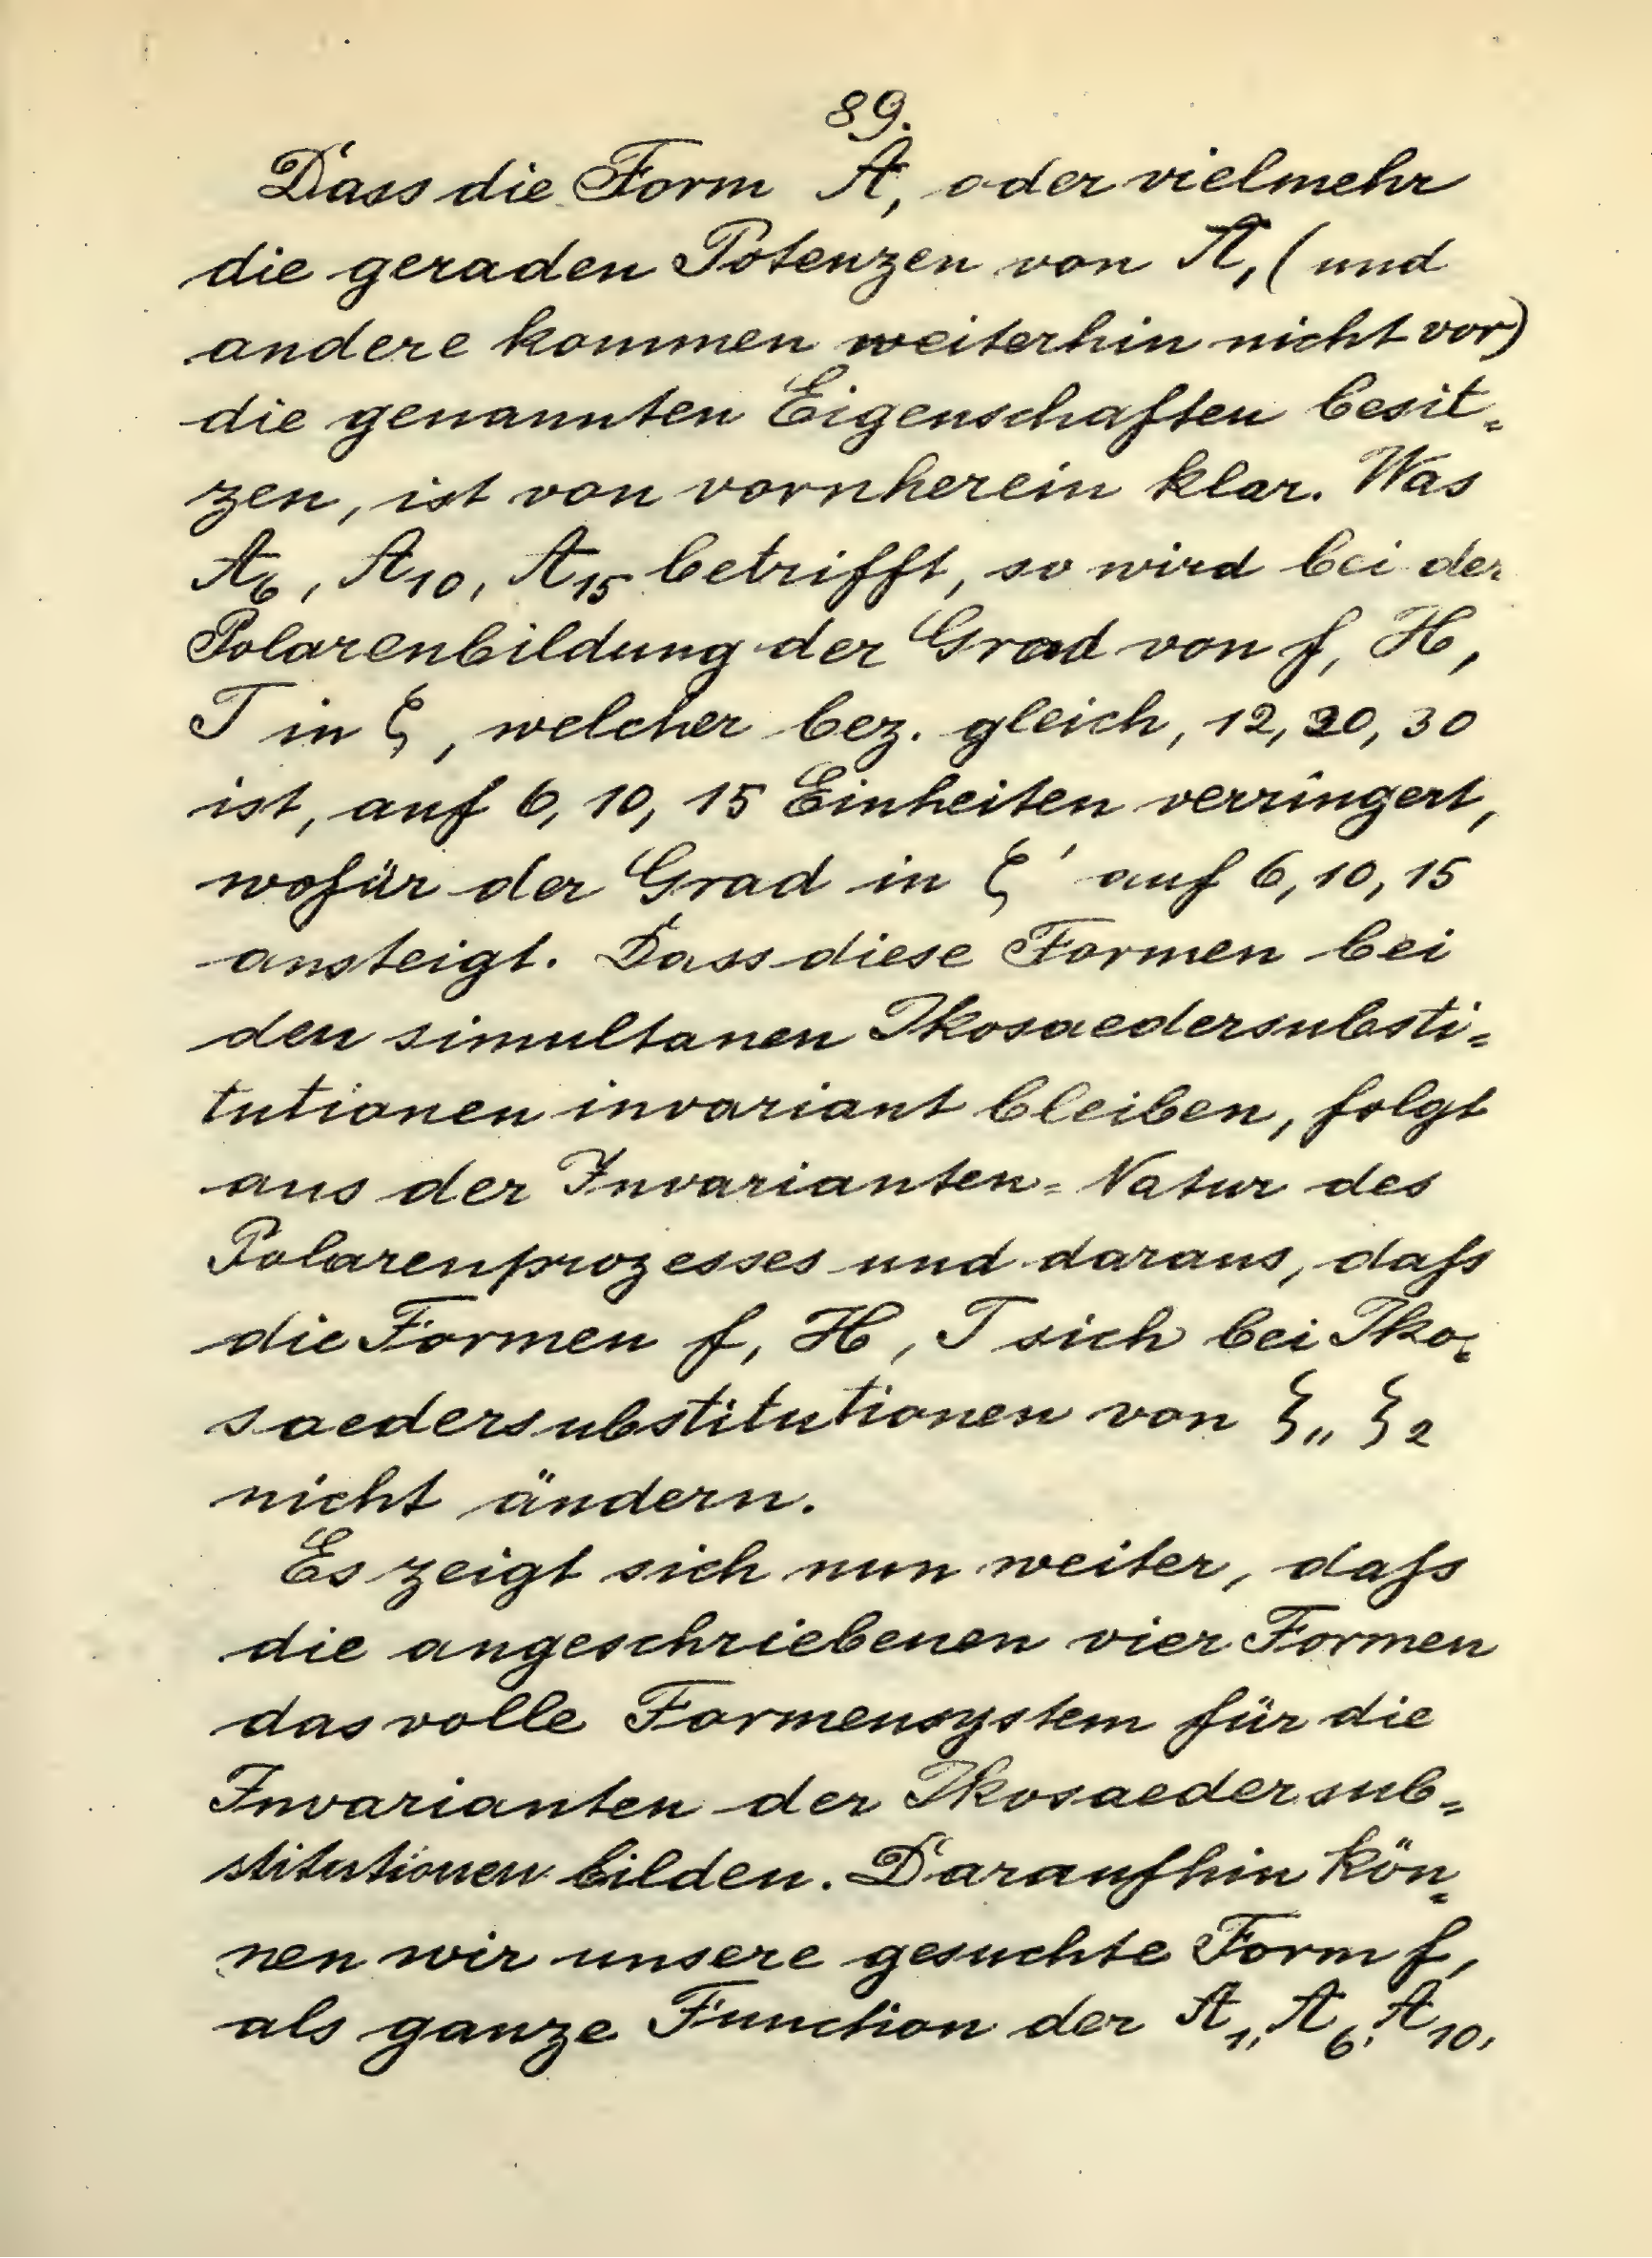 89.
Dass die Form A, oder vielmehr
die geraden Potenzen von A, (und
andere kommen weiterhin nicht vor)
die genannten Eigenschaften besit=
zen, ist von vornherein klar. Was
A₆, A₁₀, A₁₅ betrifft, so wird bei der
Polarenbildung der Grad von f, H,
T in ζ, welcher bez. gleich, 12, 20, 30
ist, auf 6, 10, 15 Einheiten verringert,
wofür der Grad in ζ' auf 6, 10, 15
ansteigt. Dass diese Formen bei
den simultanen Ikosaedersubsti=
tutionen invariant bleiben, folgt
aus der Invarianten=Natur des
Polarenprozesses und daraus, daſs
die Formen f, H, T sich bei Iko=
saedersubstitutionen von ζ₁, ζ₂
nicht ändern.
Es zeigt sich nun weiter, daſs
die angeschriebenen vier Formen
das volle Formensystem für die
Invarianten der Ikosaedersub=
stitutionen bilden. Daraufhin kön=
nen wir unsere gesuchte Form f,
als ganze Function der A₁, A₆, A₁₀,